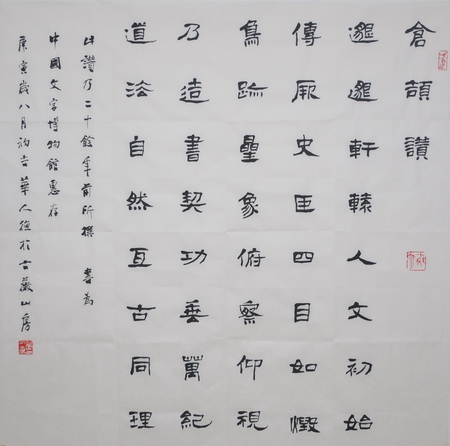 倉頡讚
邈邈軒轅人文初始
傳厥史臣四目如
鳥跡曐象俯察仰視
乃造書契功垂萬紀
道法自然亙古同理
此讚乃二十餘年前所撰 書爲
中國文字博物館惠存
庚寅歲八月初吉華人德於古山房